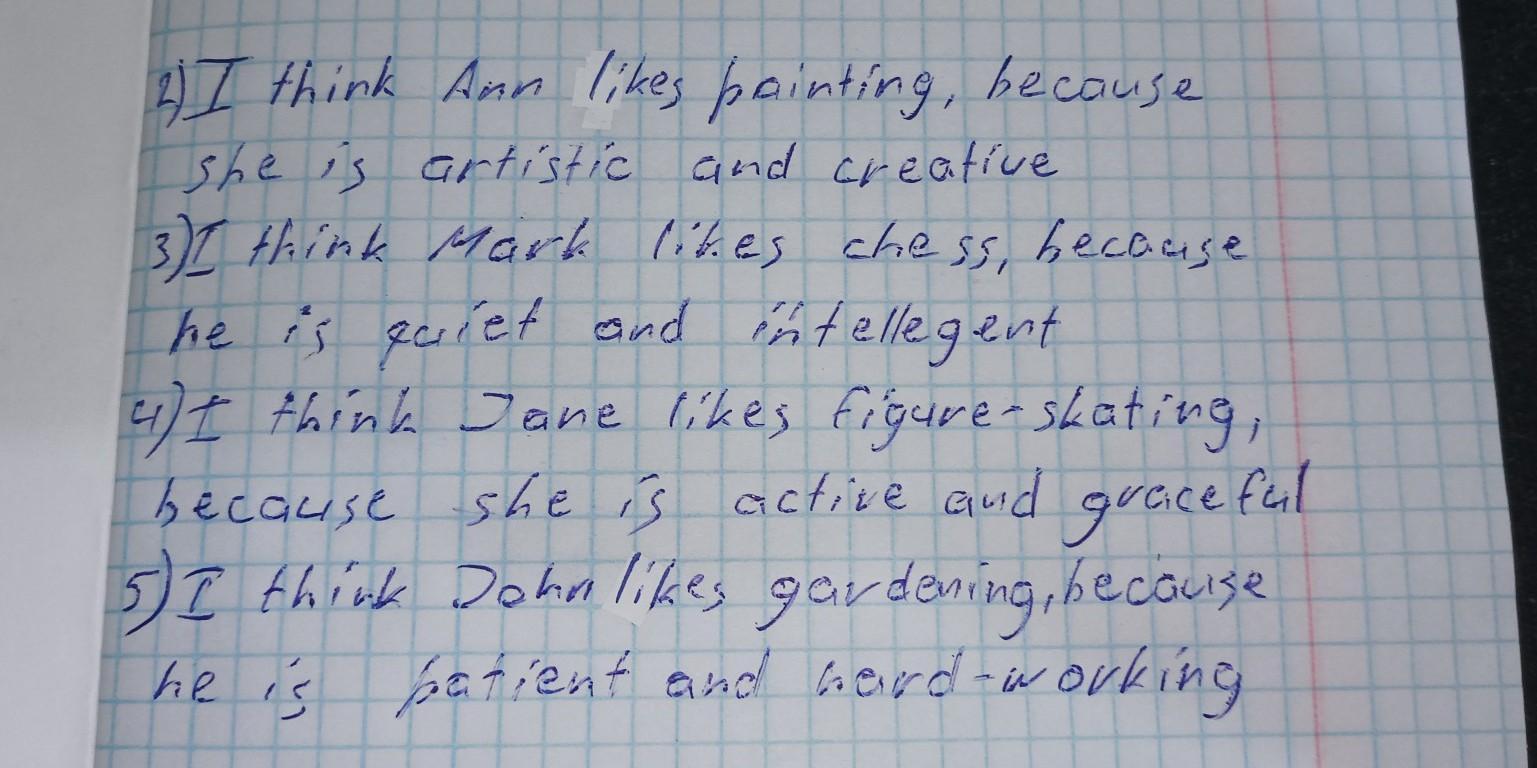 2) I think Ann likes painting, because
she is artistic and creative
3) I think Mark likes chess, because
he is quiet and intellegent
4) I think Jane likes figure-skating,
because she is active and graceful
5) I think John likes gardening, because
he is patient and hard-working